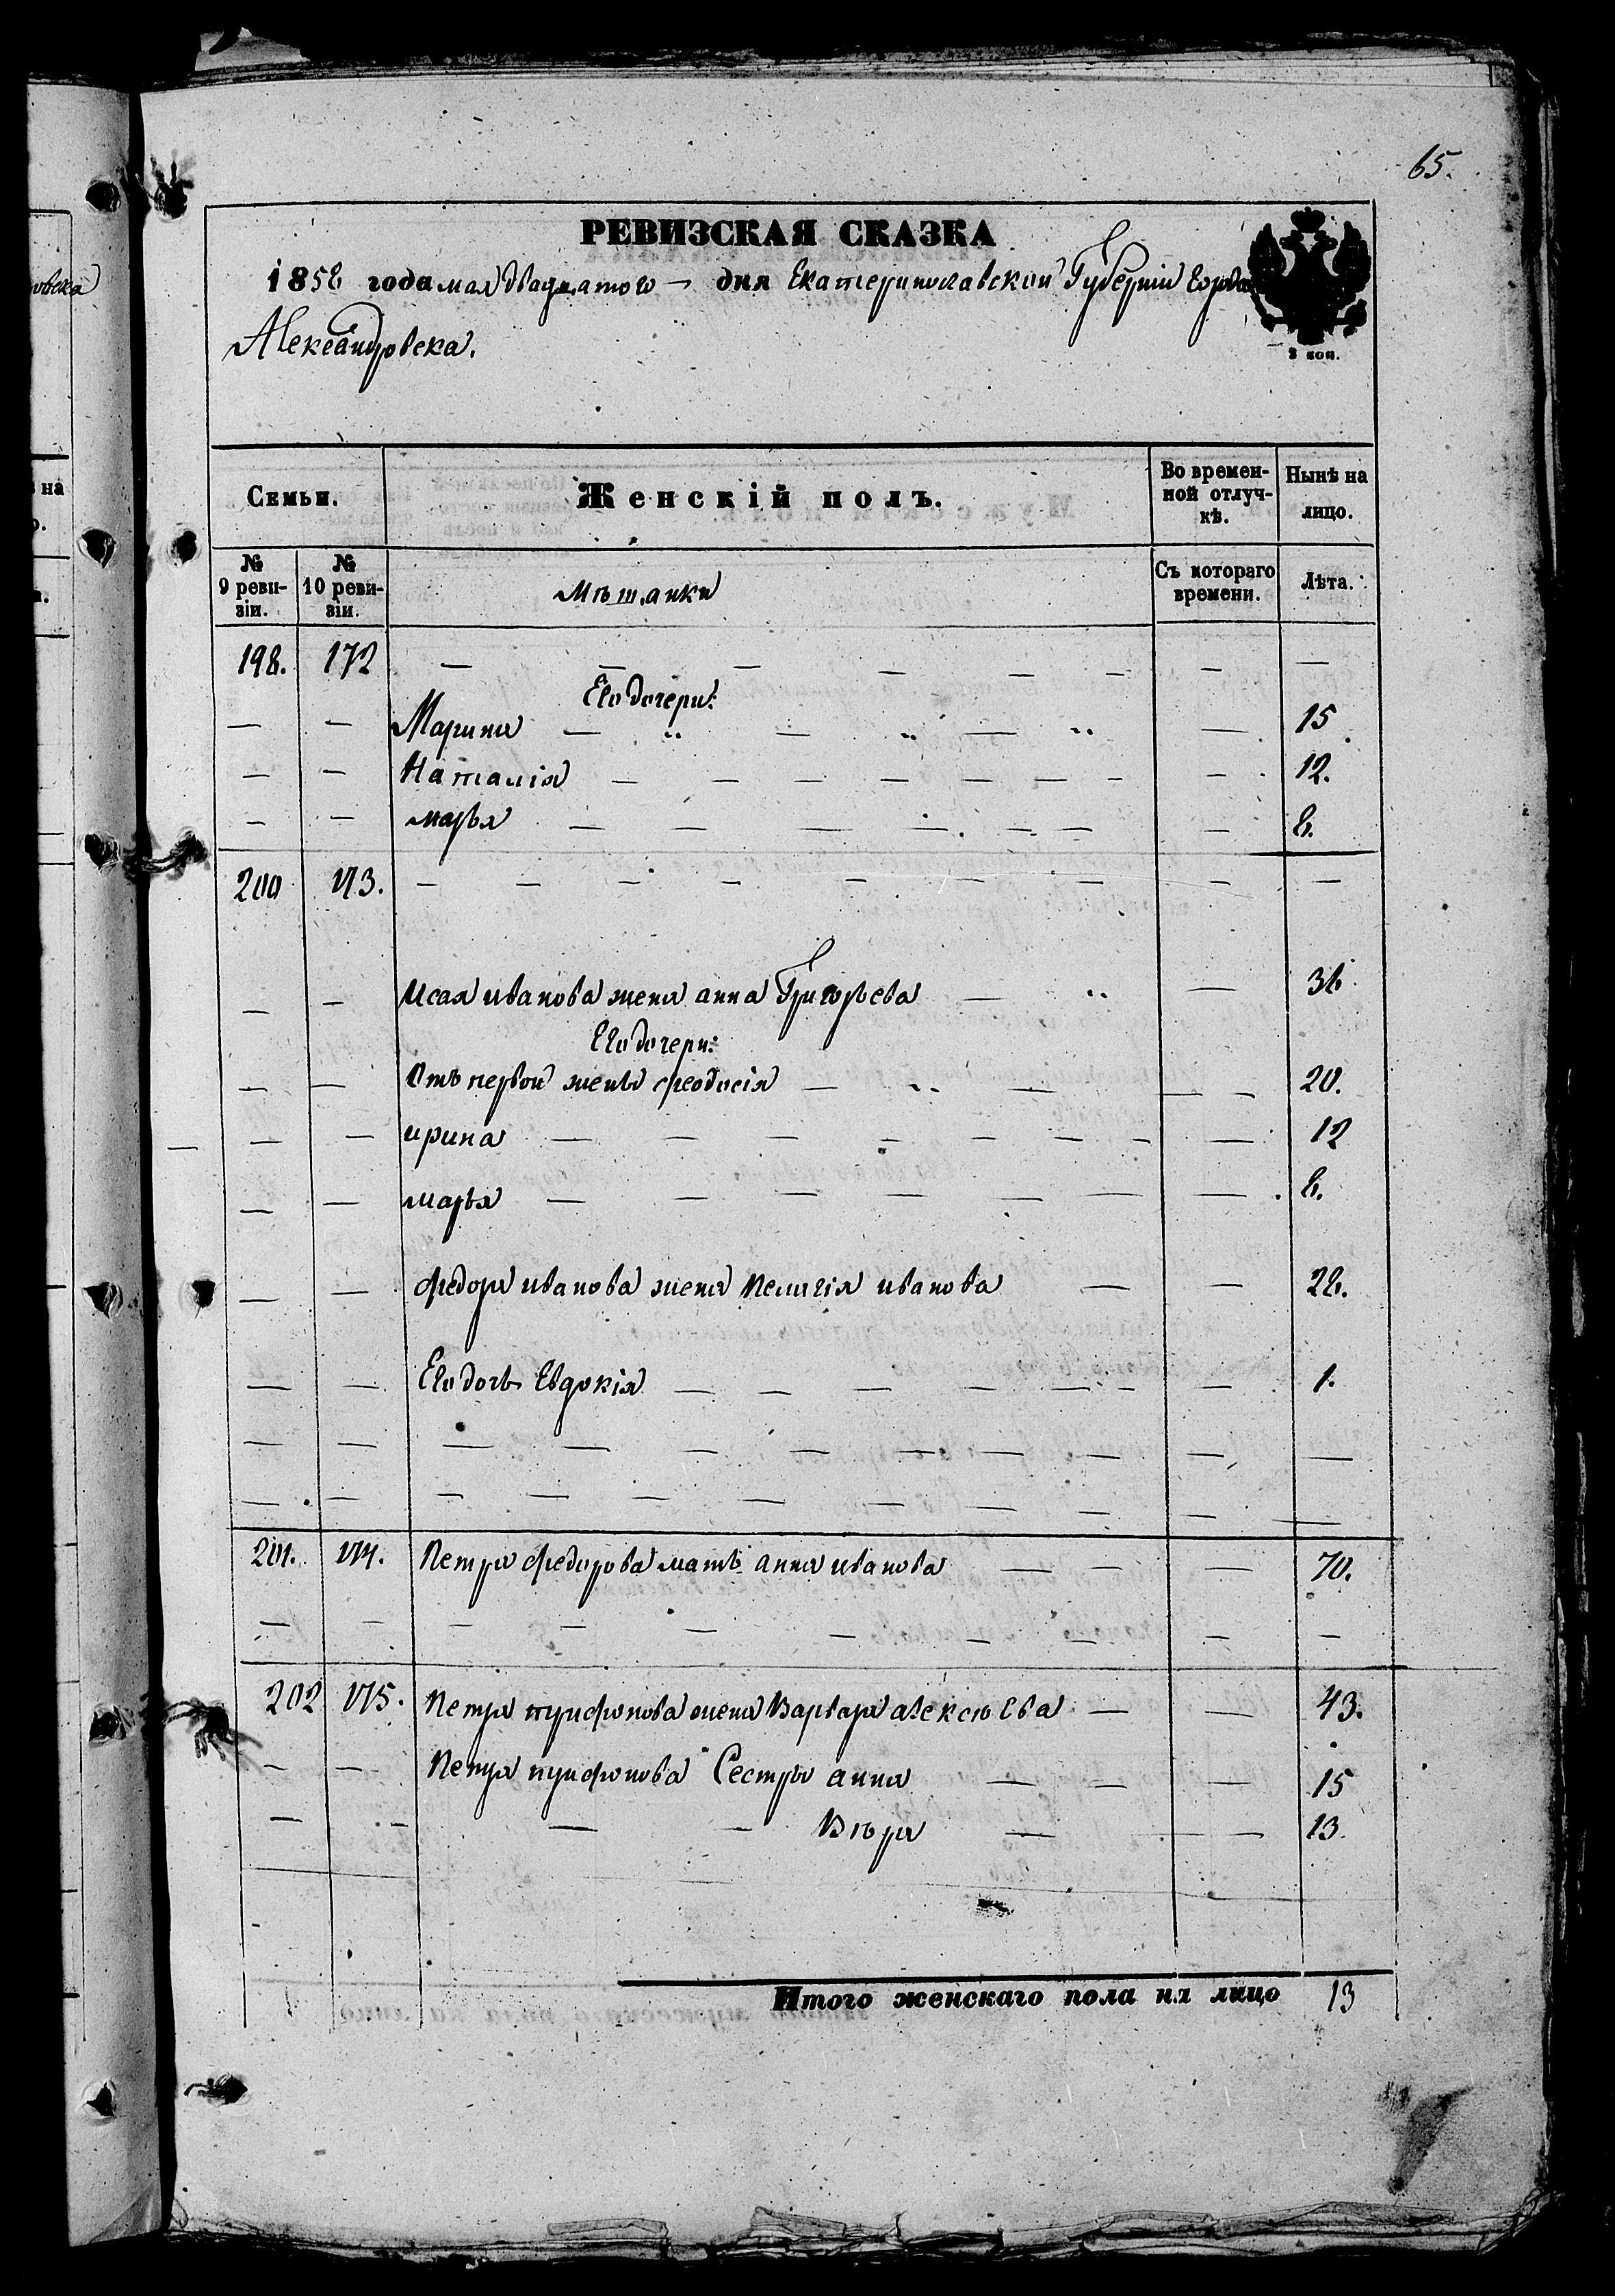 65.
РЕВИЗСКАЯ СКАЗКА
1858 года мая двадцатого — дня Екатеринославской Губерніи города
Александровска.
2 коп.
Семьи. Женскій полъ. Во времен-ной отлуч-кѣ. Нынѣ на лицо.
№ 9 реви-зіи. № 10 реви-зіи. Мѣщанки Съ котораго времени. Лѣта.
198. 172 — — — — — — — —
Его дочери:
— — Марина — — — — 15
— — Наталія — — — — — — — — 12.
— — марья — — — — — — — 8.
200 173. — — — — — — — — —
— — Исая иванова жена анна Григорьева — — 36
Его дочери:
— — Отъ первой жены феодосія — — — — 20.
— — ирина — — — — — — — — 12
— — марья — — — — — — — 8.
— — федора иванова жена Пелагія иванова — — 28.
— — Его дочь Евдокія — — — — — — — 1.
— — — — — — — — — — — —
— — — — — — — — — — — —
201. 174. Петра федорова мать анна иванова — — — 70.
— — — — — — — — — —
202 175. Петра трифонова жена Варвара алексѣева — — 43.
— — Петра трифонова Сестры анна — — — 15
— — — — Вѣра — — — 13.
Итого женскаго пола на лицо 13
на
овска